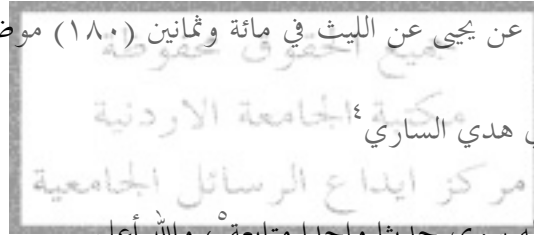 عن يحيى عن الليث في مائة وثمانين (١٨٠)
جميع الحقوق محفوظة
مكتبة الجامعة الاردنية
هدي الساري٤
مركز ايداع الرسائل الجامعية
حديثا واحدا متابعة٥، والله أعلم